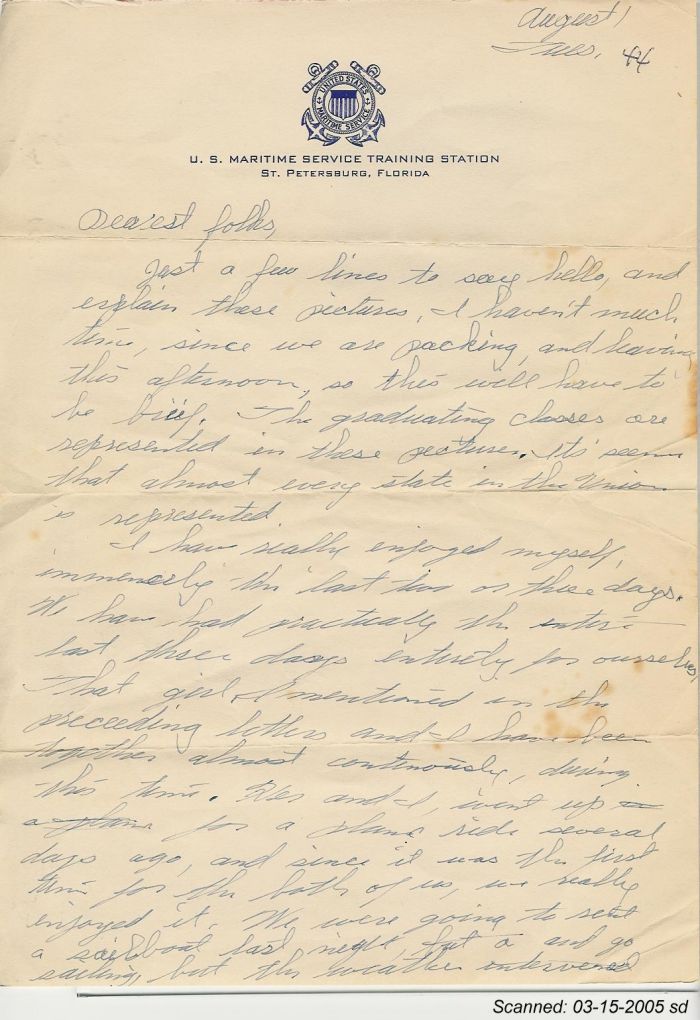 August 1
Tues. 44
UNITED STATES
MARITIME SERVICE
U. S. MARITIME SERVICE TRAINING STATION
ST. PETERSBURG, FLORIDA
Dearest folks,
Just a few lines to say hello, and
explain these pictures, I haven't much
time, since we are packing, and leaving
this afternoon, so this will have to
be brief. The graduating classes are
represented in these pictures. Its' seems
that almost every state in the Union
is represented.
I have really enjoyed myself,
immensely the last two or three days.
We have had practically the entire
last three days entirely for ourselves,
That girl I mentioned in the
preceeding letters and I have been
together almost continously, during
this time. and I, went up in
a plane for a plane ride several
days ago, and since it was the first
time for the both of us, we really
enjoyed it. We were going to rent
a sailboat last night, and go
sailing, but the weather intervened
Scanned: 03-15-2005 sd